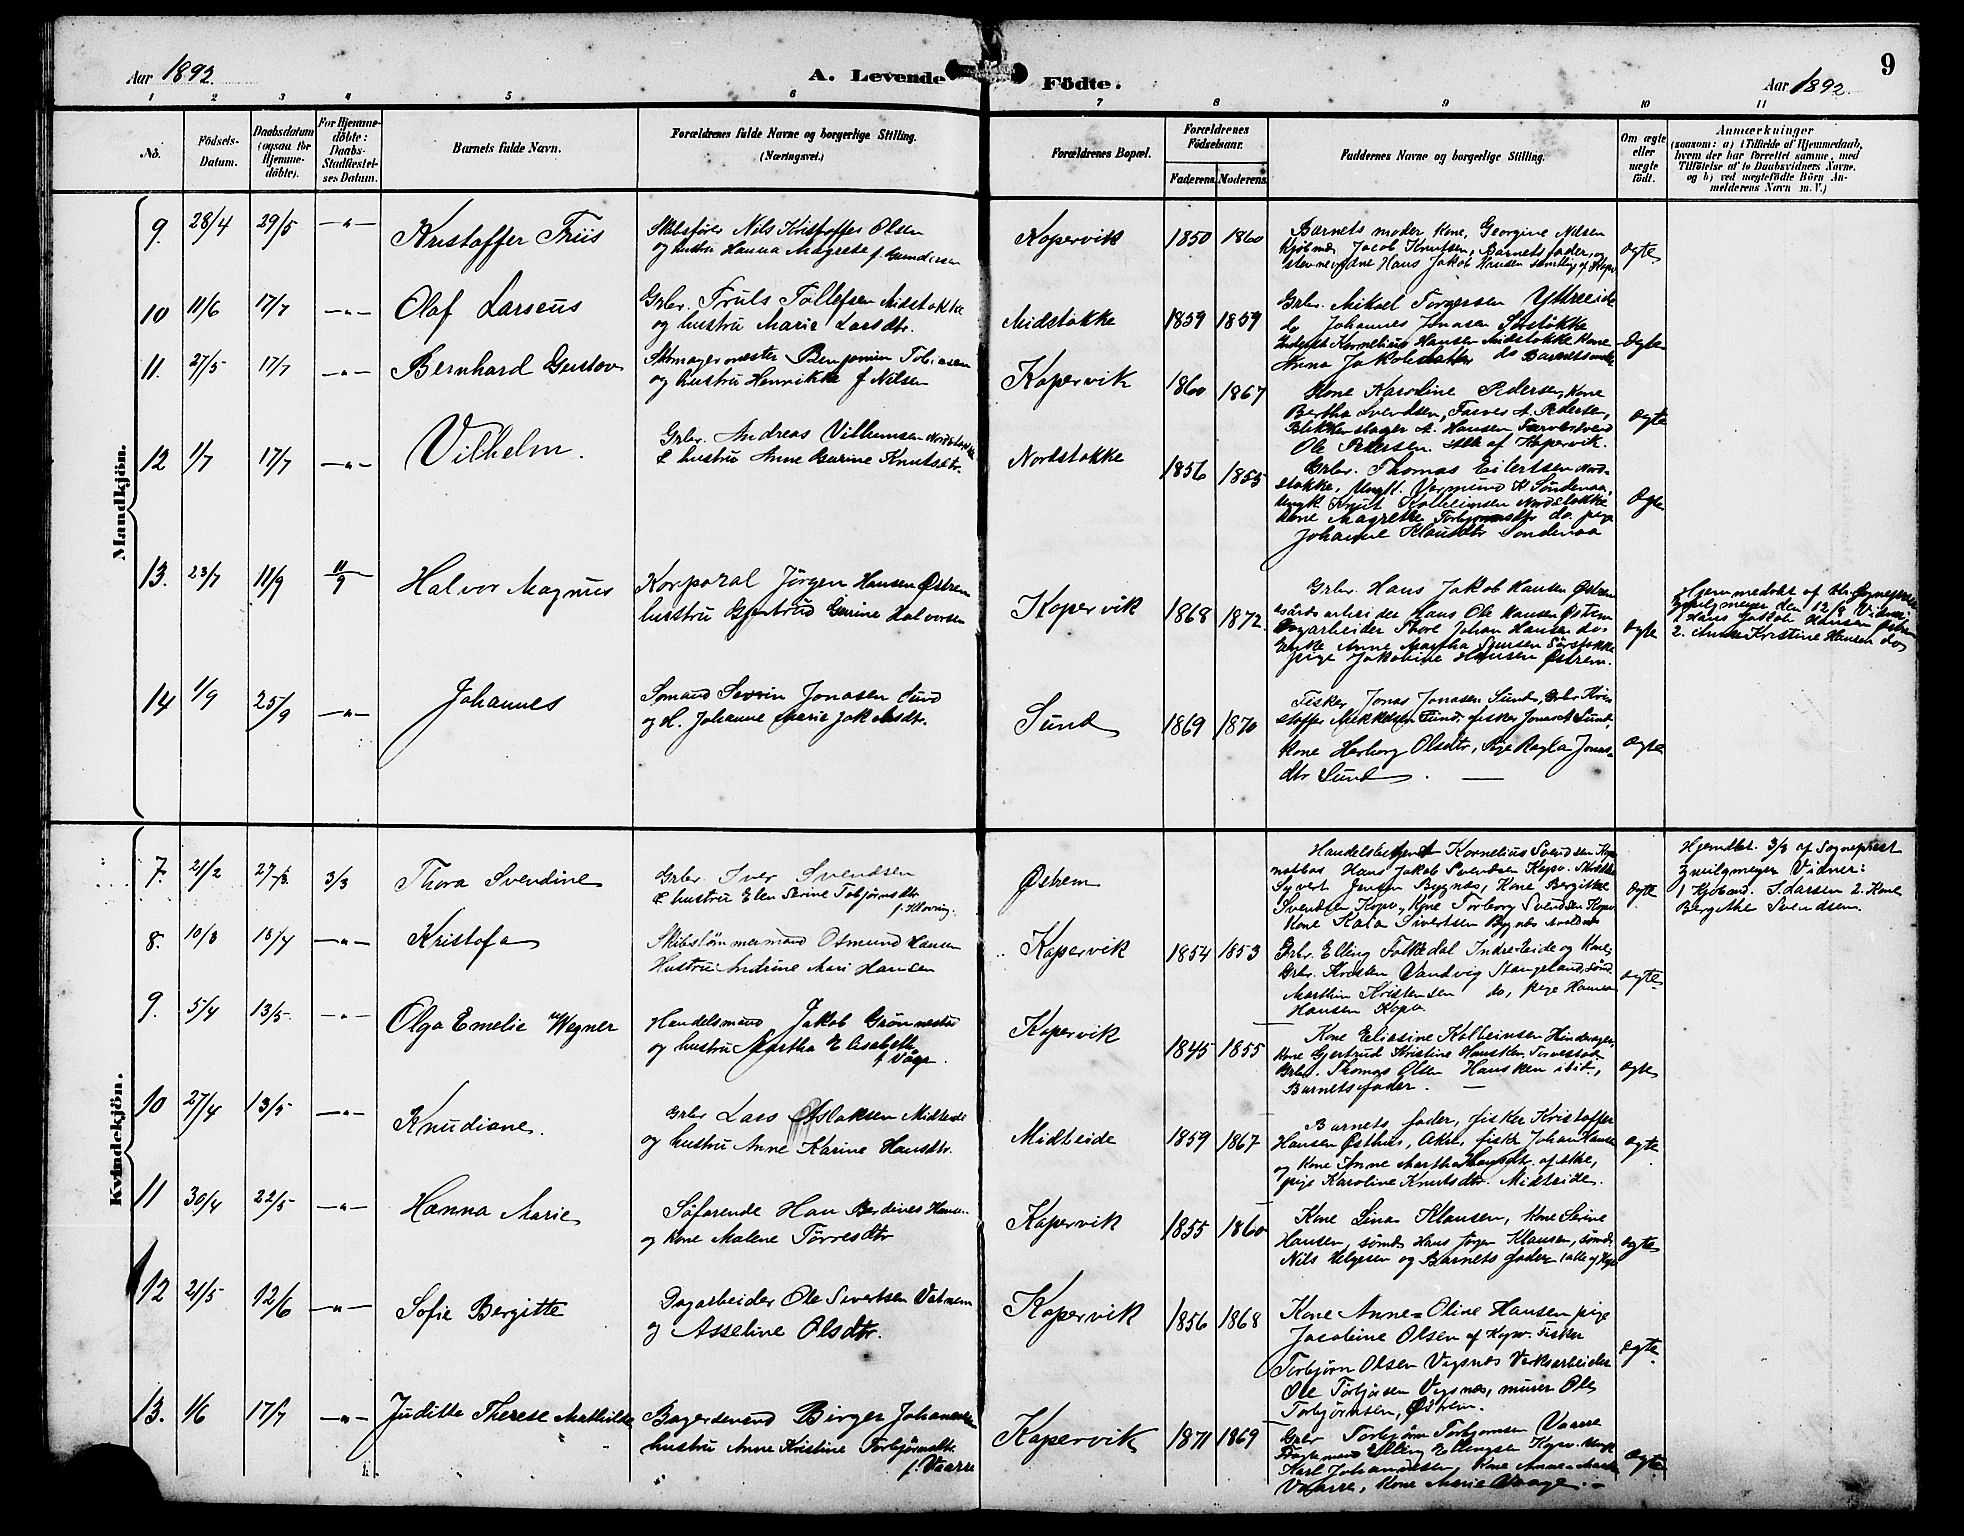 Aar 1892. A. Levende Födte. Aar 1892. 9
1 2 3 4 5 6 7 8 9 10 11
No. Födsels-Datum. Daabsdatum (ogsaa for Hjemme-döbte). For Hjemme-döbte: Daabs-Stadfæstel-ses Datum. Barnets fulde Navn. Forældrenes fulde Navne og borgerlige Stilling. (Næringsvei.) Forældrenes Bopæl. Forældrenes Födselsaar. Faderens. Moderens. Faddernes Navne og borgerlige Stilling. Om ægte eller uægte födt. Anmærkninger (saasom: a) i Tilfælde af Hjemmedaab, hvem der har forrettet samme, med Tilföielse af to Daabsvidners Navne, og b) ved uægtefödte Börn An-melderens Navn m. V.)
Mandkjön.
9. 28/4 29/5 -"- Kristoffer Friis
Skibsfører Nils Kristoffer Olsen
og hustru Hanna Magrete f. Gundersen
Kopervik 1850 1860
Barnets moder Kone, Georgine Nilsen
Jacob Knutsen, Barnets fader, og
Hans Jakob Hansen samtlig af Kopv
ægte
10 11/6 17/7 -"- Olaf Larseus
Grbr. Truls Tollefsen Midstokke
og hustru Marie Larsdtr.
Midstokke 1859 1859
Grbr. Mikael Torgersen Yttreeide
do Johannes Jonasen Sørstokke
Kornelius Hansen Midstokke Kone
Anna Jakobsdatter do Barnets moder
Ægte
11. 27/5 17/7 -"- Bernhard Gustav
Skomagermester Benjamin Tobiasen
og hustru Henrikke f Nilsen
Kopervik 1860 1867
Kone Karoline Pedersen, Kone
Bertha Svendsen, Farver A. Pedersen,
Blikkenslager A. Hansen Farversvend
Ole Pedersen. Alle af Kopervik.
ægte
12 1/7 17/7 -"- Vilhelm.
Grbr. Andreas Vilhumsen Nordstokke
& hustru Anne Karine Knutsdtr.
Nordstokke 1856 1855
Grbr. Thomas Eilertsen Nord-
stokke, Ungk. Vermund K. Søndenaa,
Ungk Knut Kolbeinsen Nordstokke
Kone Magrethe Torbjørnsdtr do. pige
Johanne Klausdtr Søndenaa
Ægte
13. 23/7 11/9 11/9 Halvor Magnus
Korporal Jörgen Hansen Østrem
hustru Gjertrud Gurine Halvorsen
Kopervik 1868 1872.
Grbr. Hans Jakob Hansen Østrem
Gårdsarbeider Hans Ole Hansen Østrem
Dagarbeider Thore Johan Hansen do.
Enke Anne Martha Sjursen Sørstokke
pige Jakobine Hansen Østrem.
ægte
Hjemmedøbt af Hr. Sognepræst
Zwilgmeyer den 12/8 Vidner:
1 Hans Jakob Hansen Østrem
2. Anne Kristine Hansen do
14 1/9 25/9 -"- Johannes
Sømand Severin Jonasen Sund
og H. Johanne Marie Jakobsdtr.
Sund 1869 1870
Fisker Jonas Jonasen Sund, Grbr Kris-
stoffer Mikkelsen Sund, fisker Jonas Sund,
Kone Herborg Olsdtr, Pige Ragla Jonas-
dtr Sund
ægte
Kvindekjön.
7. 21/2 27/3. 3/3 Thora Svendine
Grbr. Iver Svendsen
& hustru Elen Serine Tobjörnsdtr
f. Hovring.
Østrem
Handelsbetjent Kornelius Svendsen Kop-
Hans Jakob Svendsen Kopv.
Syvert Jensen Bygnæs, Kone Bergithe
Svendsen Kopv, Kone Torborg Svendsen Kopv
Kone Kala Sivertsen Bygnæs
ægte
Hjemdøbt. 3/3 af Sogneprest
Zwilgmeyer Vidner:
1 S. Larsen 2. Kone
Bergithe Svendsen.
8. 10/3 18/4 -"- Kristofa
Skibstömmermand Osmund Hansen
Hustru Andrine Mari Hansen
Kopervik 1854 1853
Grbr. Elling Folkedal Indre-Eide og Kone
Grbr. Kristen Vandvig Stangeland,
Marthin Kristensen do, pige Hanna
Hansen Kopv
ægte
9. 5/4 13/5. -"- Olga Emelie Wegner
Handelsmand Jakob Grönnestad
og hustru Martha Elisabeth
f. Våge
Kopervik 1845 1855
Kone Eliasine Kolbeinsen Hinderager,
Kone Gjertrud Kristine Hausken Tirvestad
Grbr. Thomas Olsen Hausken ibit.,
Barnets fader.
ægte
10 27/4 13/5 -"- Knudiane.
Grbr Lars Aslaksen Midteide
og hustru Anne Karine Hansdtr.
Midteide 1859 1867
Barnets fader, fisker Kristoffer
Hansen Østhus, Akre, fiskr Johan Hansen
og Kone Anne Martha Hansdtr. af Akre,
pige Karoline Knutsdtr. Midteide.
ægte
11 30/4 22/5 -"- Hanna Marie
Söfarende Han Berdines Hansen
og Kone Malene Törresdtr
Kopervik 1855 1860
Kone Lina Klausen, Kone Serine
Hansen, sømd Hans Jørgen Klausen, sømd
Nils Helgesen og Barnets fader (alle af Kopv
ægte
12 21/5 12/6 -"- Sofie Bergitte
Dagarbeider Ole Sivertsen Vatnem
og Asseline Olsdtr.
Kopervik 1856 1868
Kone Anne-Oline Hansen pige
Jacobine Olsen af Kopv. Fisker
Torbjørn Olsen Vigsnæs Verksarbeider
Ole Torbjørsen Vigsnæs, murer Ole
Torbjørnsen, Østrem.
ægte.
13. 1/6 17/7 -"- Juditte Therese Mathilde
Bagersvend Birger Johannesen
hustru Anne Kristine Torbjørnsdtr.
f. Vaarre
Kopervik 1871 1869
Grbr Torbjörn Torbjørnsen Vaarre
Elling Ellingsen Kopv. Ungk
Karl Johannesen, Kone Anne Marthe
Vaarre, Kone Marie Vaage.
ægte